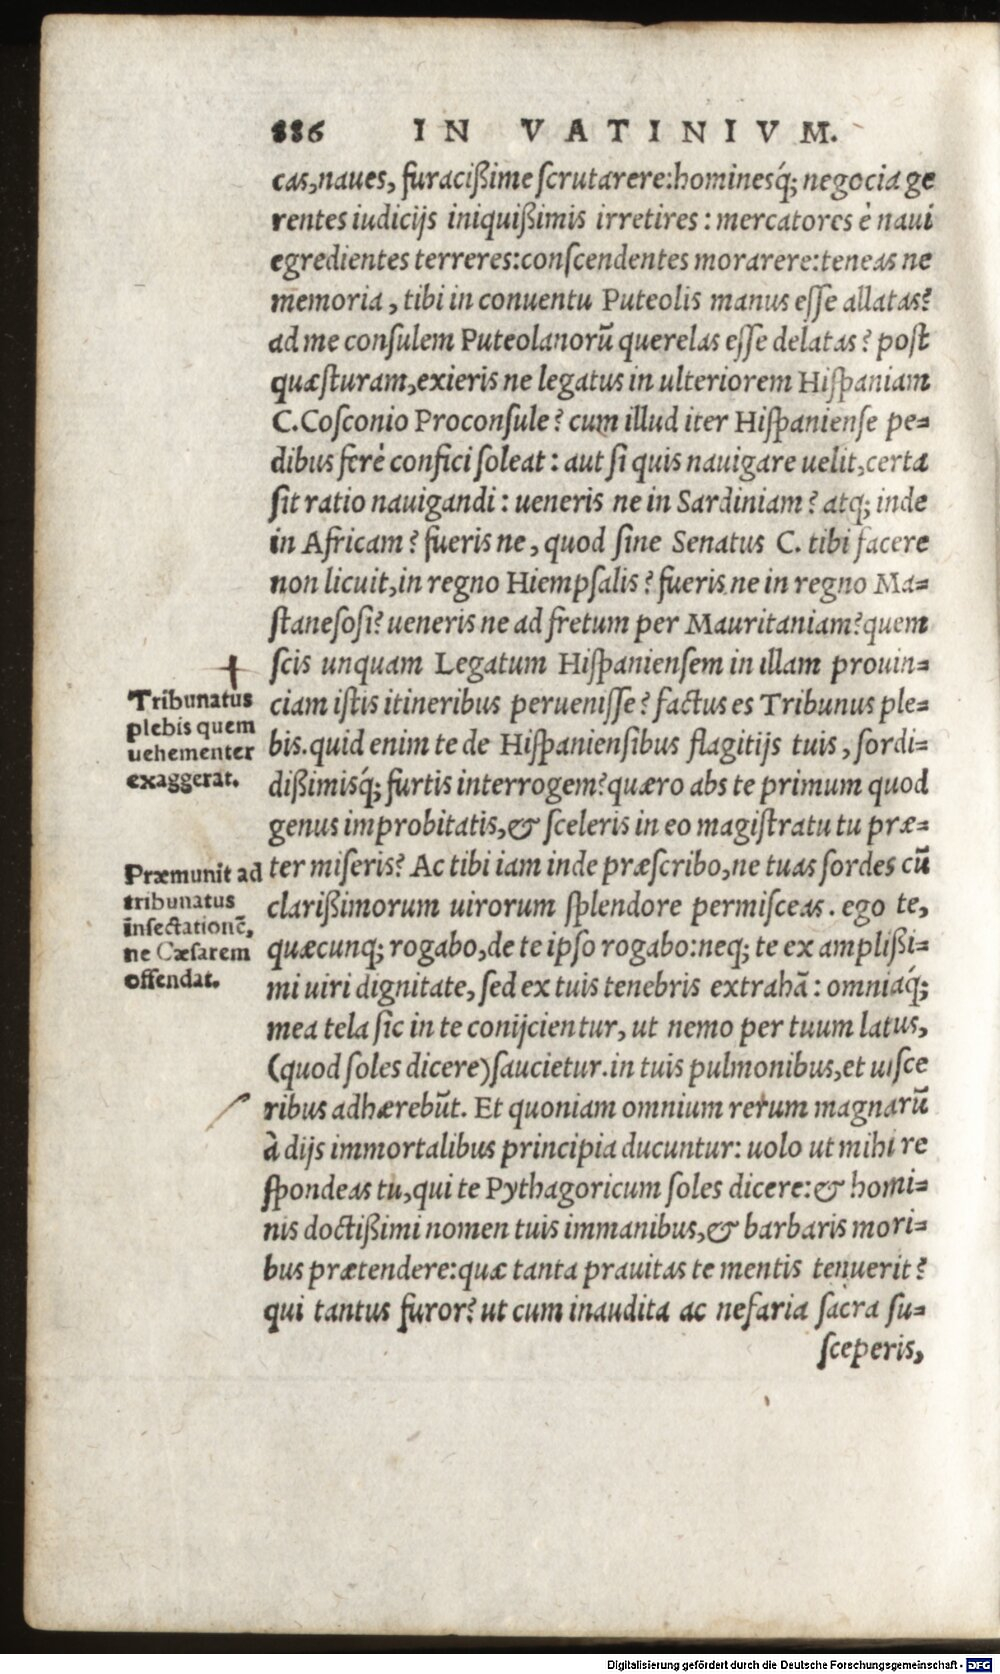 886 IN VATINIVM.
cas,naues, furacißime scrutarere:hominesq́; negocia ge
rentes iudicijs iniquißimis irretires : mercatores è naui
egredientes terreres:conscendentes morarere:teneas ne
memoria , tibi in conuentu Puteolis manus esse allatas?
ad me consulem Puteolanorũ querelas esse delatas ? post
quæsturam,exieris ne legatus in ulteriorem Hispaniam
C.Cosconio Proconsule ? cum illud iter Hispaniense pe=
dibus ferè confici soleat : aut si quis nauigare uelit,certa
sit ratio nauigandi : ueneris ne in Sardiniam ? atq; inde
in Africam ? fueris ne , quod sine Senatus C. tibi facere
non licuit,in regno Hiempsalis ? fueris ne in regno Ma=
stanesosi? ueneris ne ad fretum per Mauritaniam?quem
scis unquam Legatum Hispaniensem in illam prouin=
ciam istis itineribus peruenisse ? factus es Tribunus ple=
bis.quid enim te de Hispaniensibus flagitijs tuis , sordi=
dißimisq́; furtis interrogem?quæro abs te primum quod
genus improbitatis,& sceleris in eo magistratu tu præ=
ter miseris? Ac tibi iam inde præscribo,ne tuas sordes cũ
clarißimorum uirorum splendore permisceas . ego te,
quæcunq; rogabo,de te ipso rogabo:neq; te ex amplißi=
mi uiri dignitate, sed ex tuis tenebris extrahã : omniaq́;
mea tela sic in te conijcientur, ut nemo per tuum latus,
(quod soles dicere)saucietur.in tuis pulmonibus,et uisce
ribus adhærebũt. Et quoniam omnium rerum magnarũ
à dijs immortalibus principia ducuntur: uolo ut mihi re
spondeas tu,qui te Pythagoricum soles dicere:& homi=
nis doctißimi nomen tuis immanibus,& barbaris mori=
bus prætendere:quæ tanta prauitas te mentis tenuerit ?
qui tantus furor? ut cum inaudita ac nefaria sacra su=
sceperis,
Tribunatus
plebis quem
uehementer
exaggerat.
Præmunit ad
tribunatus
insectationẽ,
ne Cæsarem
offendat.
Digitalisierung gefördert durch die Deutsche Forschungsgemeinschaft - DFG